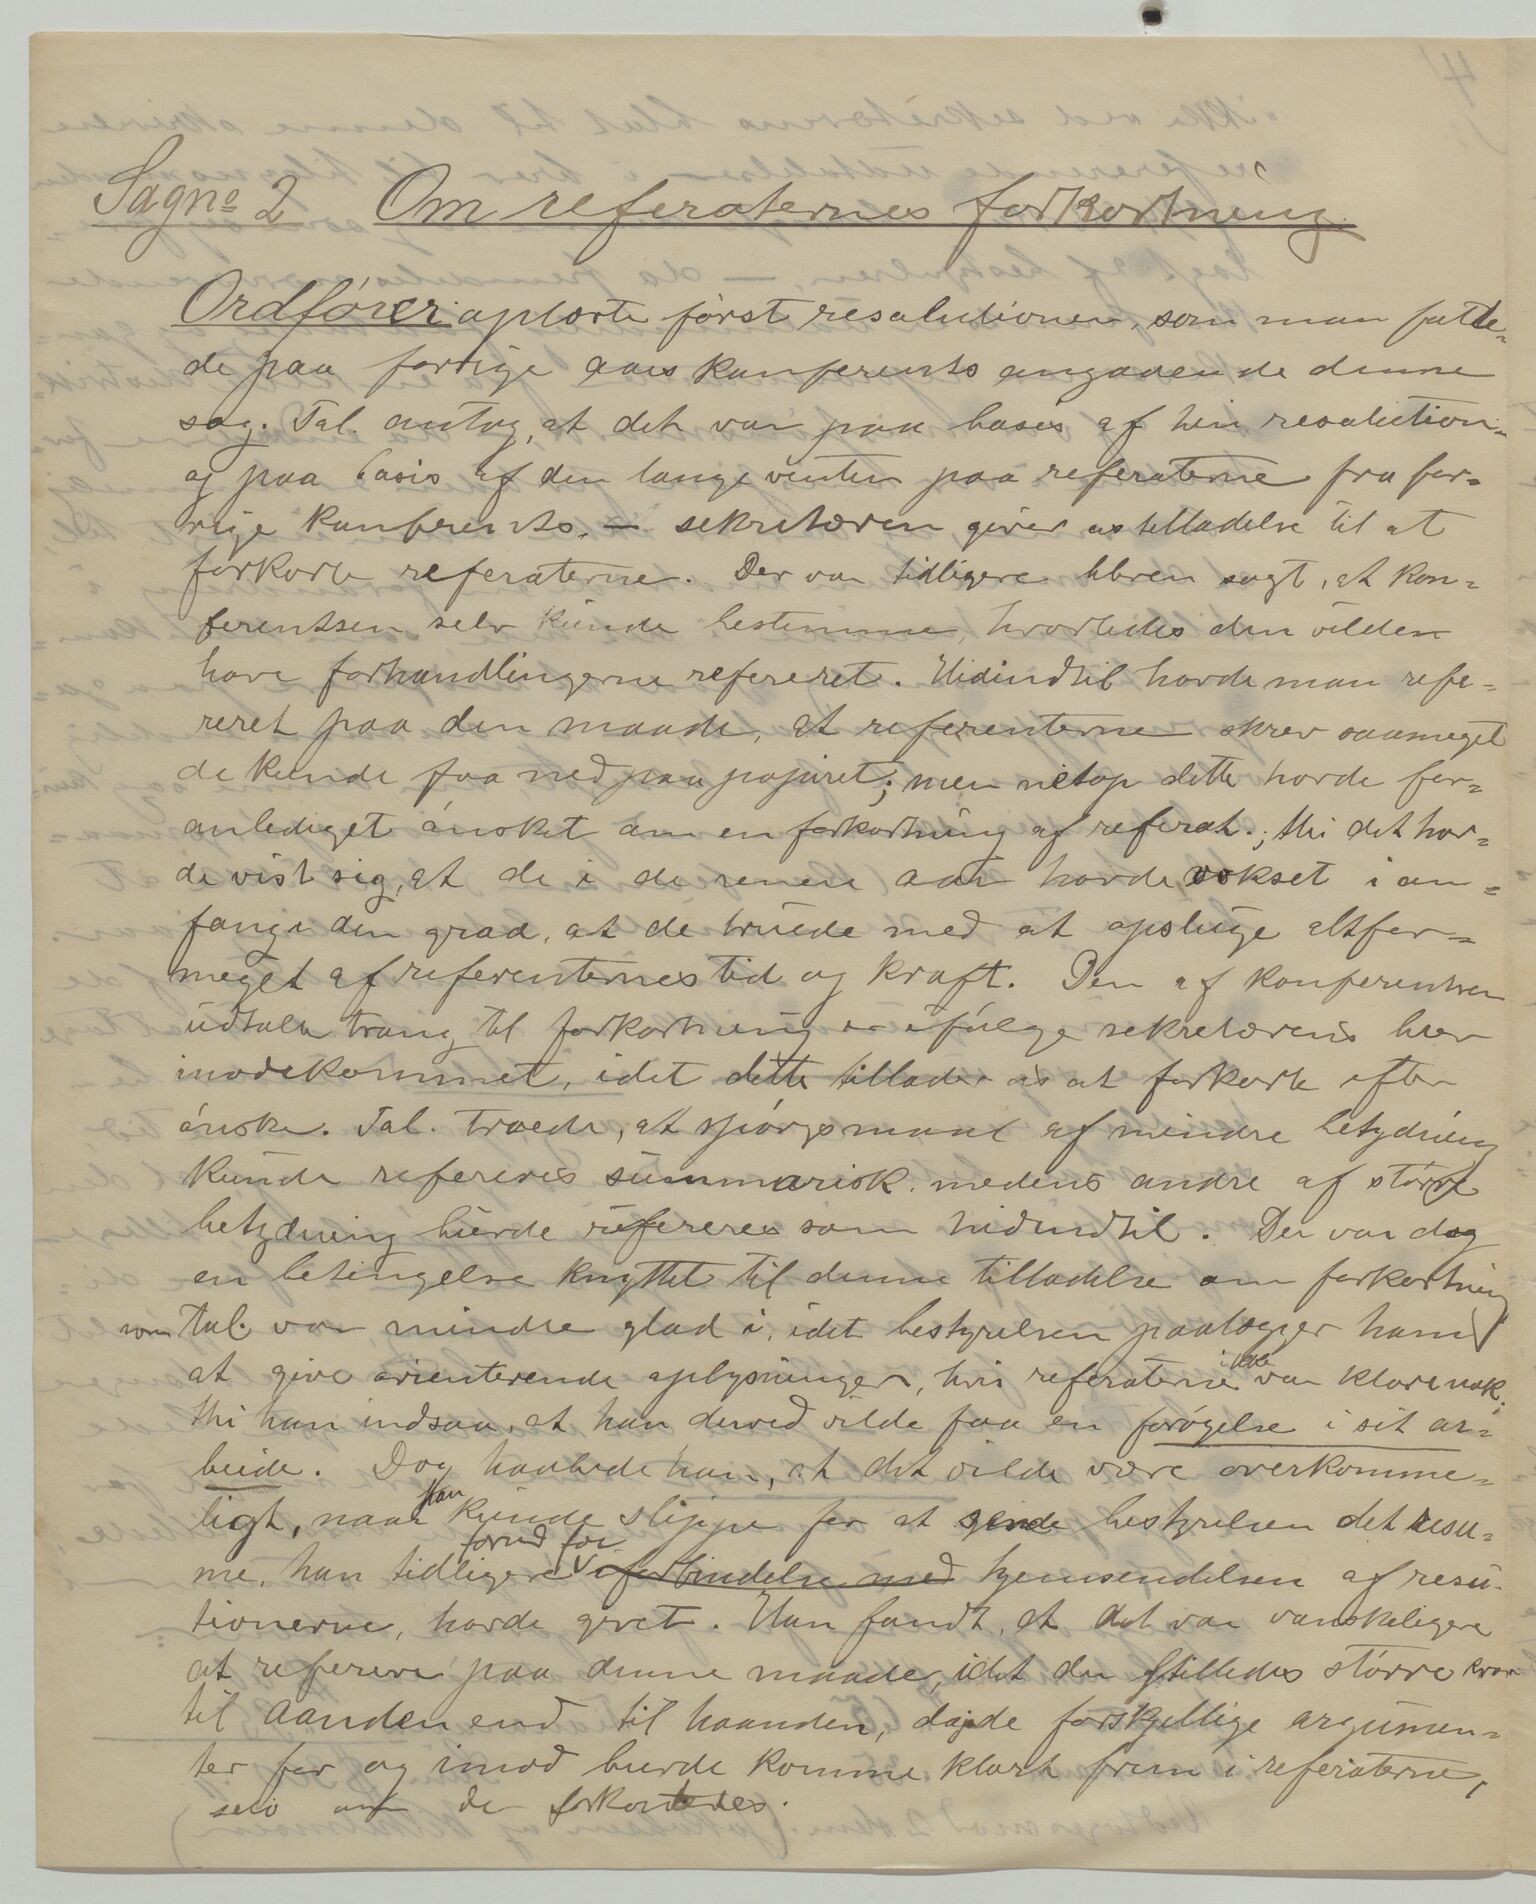 Sag no 2 Om referaternes forkortning.
Ordfører oplæste først resolutionen, som man fatte-
de paa forrige aars konferents angaaende denne
sag. Tal. antog, at det var paa basis af hin resolution
og paa basis af den lange venten paa referaterne fra for-
rige konferents, – sekretæren giver os tilladelse til at
forkorte referaterne. Der var tidligere bleven sagt, at kon-
ferentsen selv kunde bestemme, hvorledes den vilde
have forhandlingerne refereret. Hidindtil havde man refe-
reret paa den maade, at referenterne skrev saameget
de kunde faa ned paa papiret; men netop dette havde for-
anlediget ønsket om en forkortning af referat.; thi det hav-
de vist sig, at de i de senere aar havde vokset i om-
fang i den grad, at de truede med at opsluge altfor-
meget af referenternes tid og kraft. Den af konferentsen
udtalte trang til forkortning er ifølge sekretærens brev
imødekommet, idet dette tillader os at forkorte efter
ønske. Tal. troede, at spørgsmaal af mindre betydning
kunde refereres summarisk, medens andre af større
betydning burde refereres som hidindtil. Der var dog
en betingelse knyttet til denne tilladelse om forkortning
som tal. var mindre glad i, idet bestyrelsen paalægger ham
at give orienterende oplysninger, hvis referaterne ikke var klare nok.
thi han indsaa, at han derved vilde faa en forøgelse i sit ar-
beide. Dog haabede han, at det vilde være overkomme-
ligt, naar han kunde slippe for at sende bestyrelsen det resu-
me, han tidligere forud for i forbindelse med hjemsendelsen af resu-
tionerne, havde givet. Han fandt, at det var vanskeligere
at referere paa denne maade, idet der stilledes større krav
til aanden end til haanden, da de forskjellige argumen-
ter for og imod burde komme klart frem i referaterne,
selv om de forkortedes.